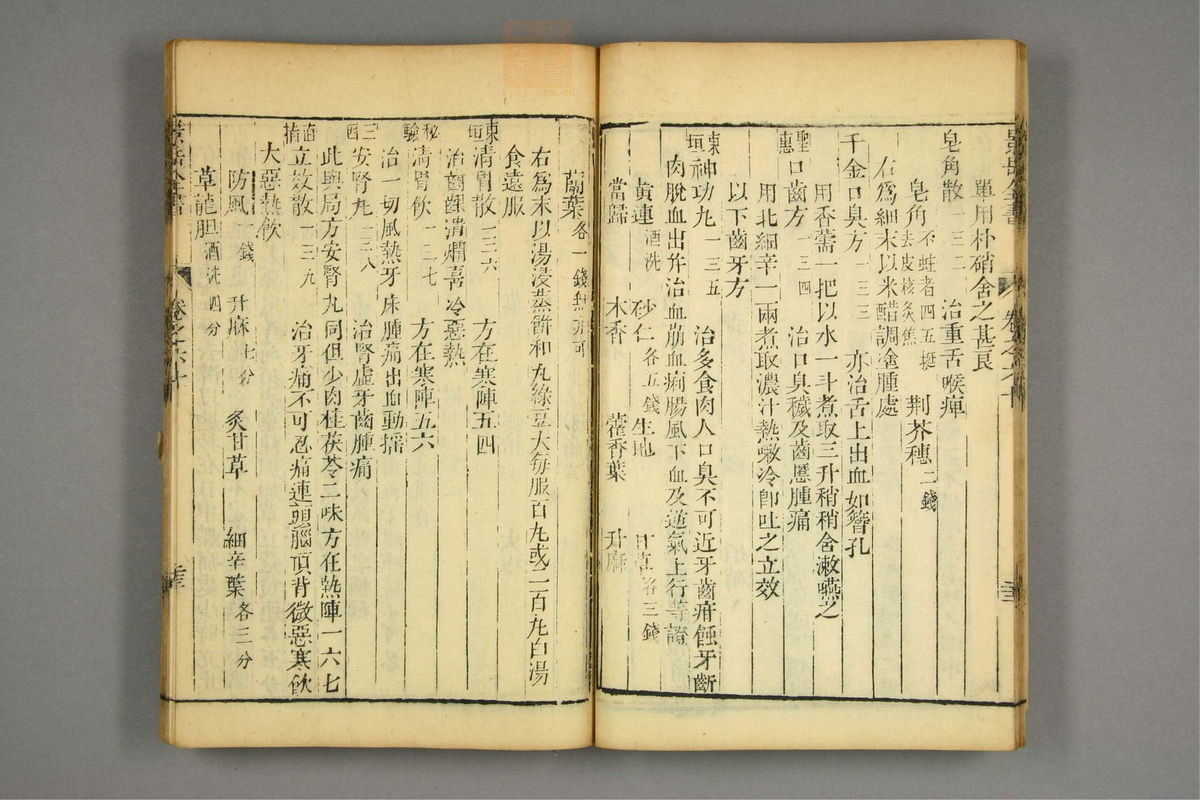 景岳全書 卷之六十
單用朴硝含之甚良
皂角散一三二 治重舌喉痺
皂角不蛀者四五挺去皮核炙焦 荆芥穗二錢
右爲細末以米醋調塗腫處
千金口臭方一三三 亦治舌上出血如簪孔
用香薷一把以水一斗煮取三升稍稍含漱嚥之
聖惠口齒方一三四 治口臭穢及齒䘌腫痛
用北細辛一兩煮取濃汁熱嗽冷卽吐之立效
以下齒牙方
東垣神功丸一三五 治多食肉人口臭不可近牙齒疳蝕牙斷
肉脫血出并治血崩血痢腸風下血及逆氣上行等證
黃連酒洗 砂仁各五錢 生地 甘草各三錢
當歸 木香 藿香葉 升麻
蘭葉各一錢無亦可
右爲末以湯浸蒸餅和丸綠豆大每服百丸或二百丸白湯
食遠服
東垣清胃散一三六 方在寒陣五四
治齒齦潰爛喜冷惡熱
秘驗清胃飲一三七 方在寒陣五六
治一切風熱牙床腫痛出血動搖
三因安腎丸一三八 治腎虛牙齒腫痛
此與局方安腎丸同但少肉桂茯苓二味方在熱陣一六七
直指立效散一三九 治牙痛不可忍痛連頭腦頂背微惡寒飲
大惡熱飲
防風一錢 升麻七分 炙甘草 細辛葉各三分
草龍胆酒洗四分
景岳全書 卷之六十